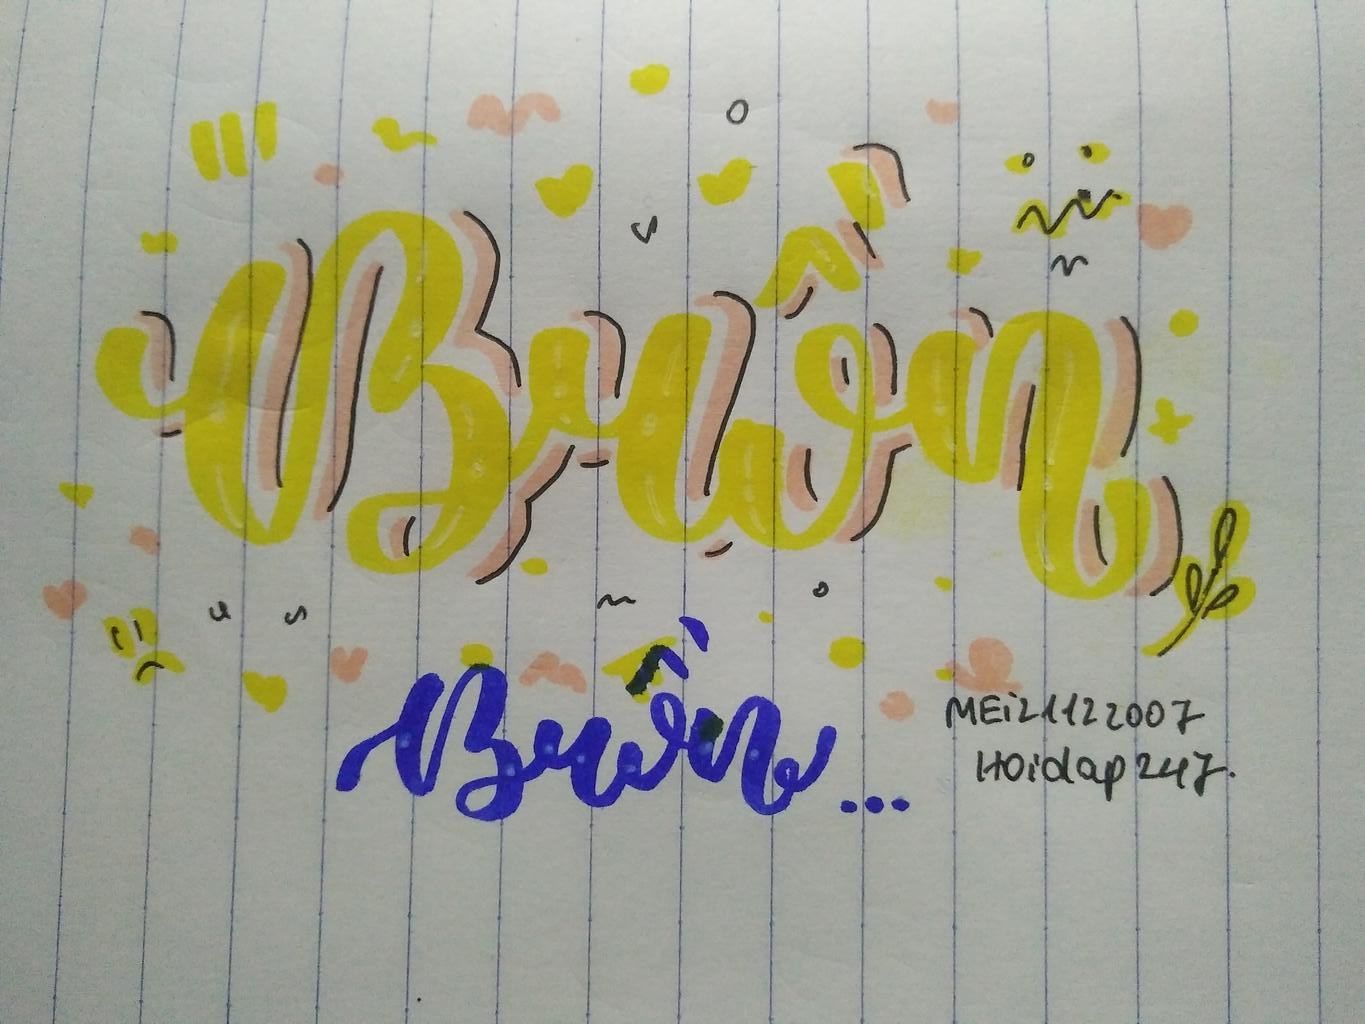 Buồn
Buồn...
MEi21122007
Hoidap247.